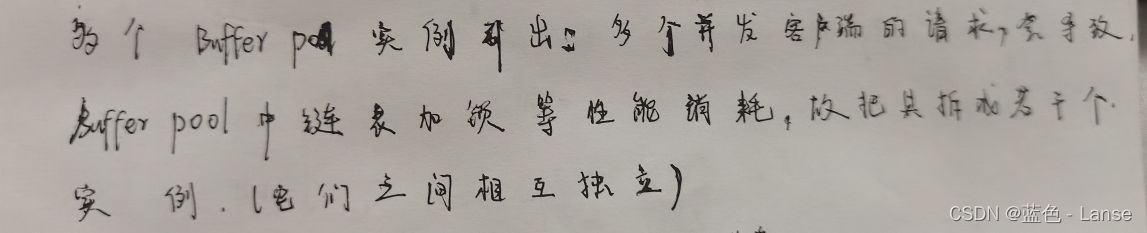 多个 Buffer pool 实例引出：多个并发客户端的请求，会导致，
Buffer pool 中链表加锁等性能消耗，故把其拆成若干个
实例.(它们之间相互独立)
CSDN @蓝色 - Lanse